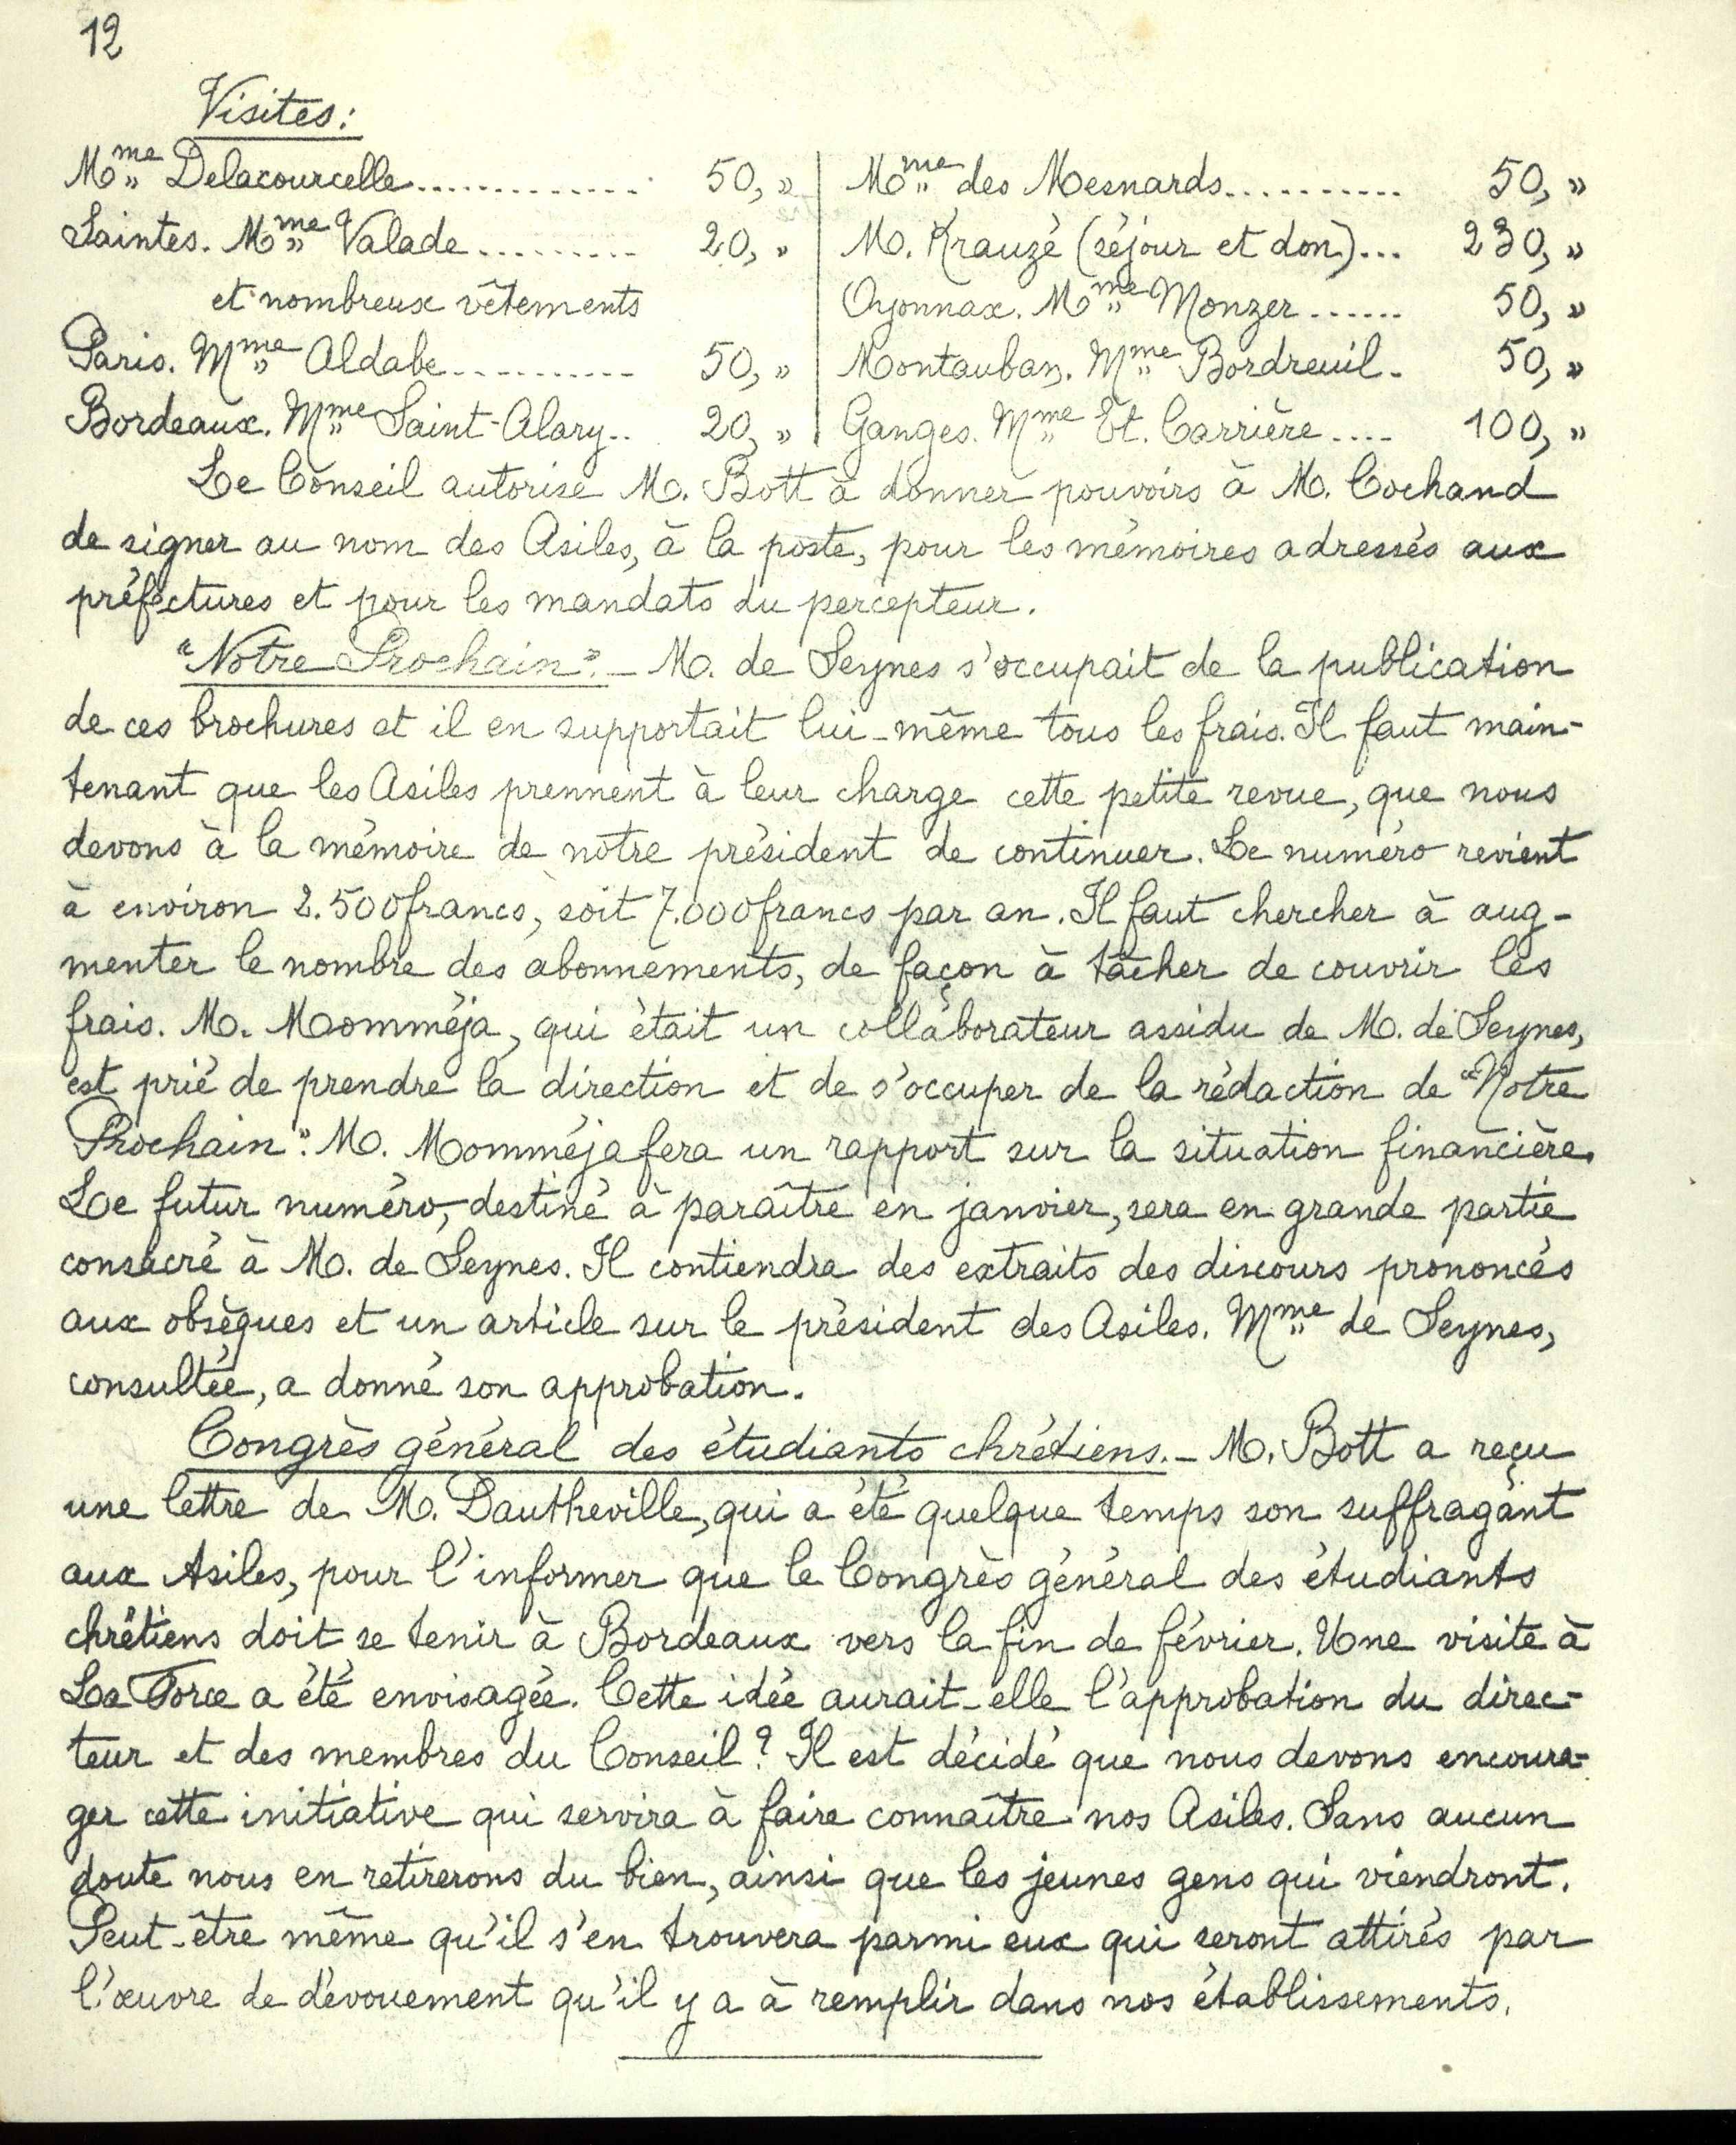 12
Visites:
Mme Delacourcelle............. 50,»
Saintes. Mme Valade......... 20,»
et nombreux vêtements
Paris. Mme Aldabe........... 50,»
Bordeaux. Mme Saint-Alary.. 20,»
Mme des Mesnards.......... 50,»
M. Krauzé (séjour et don)... 230,»
Oyonnax. Mme Monzer...... 50,»
Montauban. Mme Bordreuil. 50,»
Ganges. Mme Et. Carrière.... 100,»
Le Conseil autorise M. Bott à donner pouvoirs à M. Cochand
de signer au nom des Asiles, à la poste, pour les mémoires adressés aux
préfectures et pour les mandats du percepteur.
"Notre Prochain".- M. de Seynes s'occupait de la publication
de ces brochures et il en supportait lui-même tous les frais. Il faut main-
tenant que les Asiles prennent à leur charge cette petite revue, que nous
devons à la mémoire de notre président de continuer. Le numéro revient
à environ 2.500 francs, soit 7.000 francs par an. Il faut chercher à aug-
menter le nombre des abonnements, de façon à tâcher de couvrir les
frais. M. Momméja, qui était un collaborateur assidu de M. de Seynes,
est prié de prendre la direction et de s'occuper de la rédaction de "Notre
Prochain". M. Momméja fera un rapport sur la situation financière.
Le futur numéro, destiné à paraître en janvier, sera en grande partie
consacré à M. de Seynes. Il contiendra des extraits des discours prononcés
aux obsèques et un article sur le président des Asiles. Mme de Seynes,
consultée, a donné son approbation.
Congrès général des étudiants chrétiens.- M. Bott a reçu
une lettre de M. Dautheville, qui a été quelque temps son suffragant
aux Asiles, pour l'informer que le Congrès général des étudiants
chrétiens doit se tenir à Bordeaux vers la fin de février. Une visite à
La Force a été envisagée. Cette idée aurait-elle l'approbation du direc-
teur et des membres du Conseil? Il est décidé que nous devons encoura-
ger cette initiative qui servira à faire connaître nos Asiles. Sans aucun
doute nous en retirerons du bien, ainsi que les jeunes gens qui viendront.
Peut-être même qu'il s'en trouvera parmi eux qui seront attirés par
l'œuvre de dévouement qu'il y a à remplir dans nos établissements.